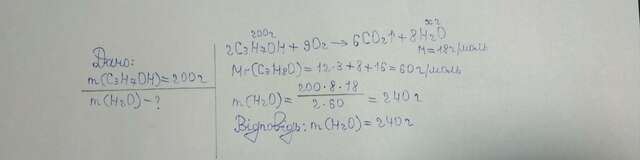 Дано:
m(C₃H₇OH)=200г
m(H₂O)-?
200г xг
2C₃H₇OH + 9O₂ → 6CO₂↑ + 8H₂O
M=18г/моль
Mr(C₃H₈O)=12·3+8+16=60г/моль
m(H₂O)= 200·8·18 / 2·60 = 240г
Відповідь: m(H₂O)=240г